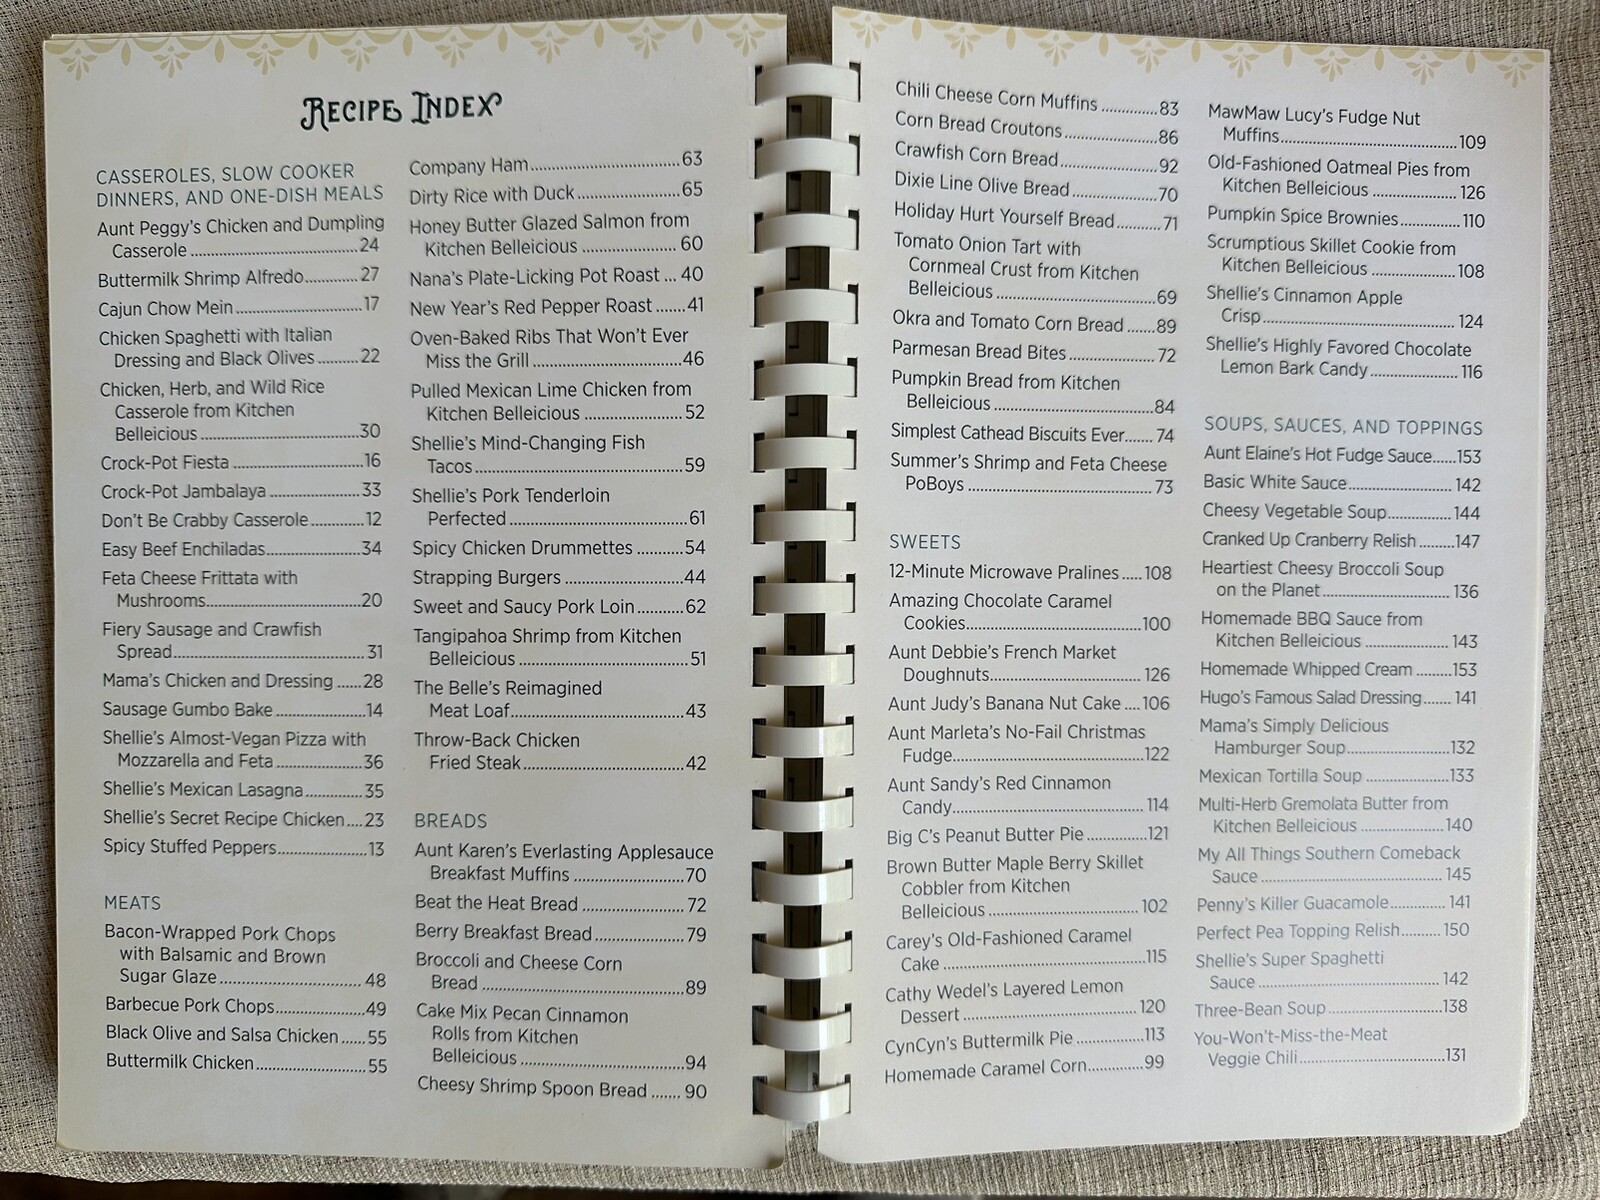 RECIPE INDEX
CASSEROLES, SLOW COOKER
DINNERS, AND ONE-DISH MEALS
Aunt Peggy's Chicken and Dumpling
Casserole ................................ 24
Buttermilk Shrimp Alfredo........... 27
Cajun Chow Mein ........................ 17
Chicken Spaghetti with Italian
Dressing and Black Olives .......... 22
Chicken, Herb, and Wild Rice
Casserole from Kitchen
Belleicious ................................ 30
Crock-Pot Fiesta ........................ 16
Crock-Pot Jambalaya .................. 33
Don't Be Crabby Casserole ........... 12
Easy Beef Enchiladas.................. 34
Feta Cheese Frittata with
Mushrooms................................ 20
Fiery Sausage and Crawfish
Spread...................................... 31
Mama's Chicken and Dressing ...... 28
Sausage Gumbo Bake .................. 14
Shellie's Almost-Vegan Pizza with
Mozzarella and Feta .................. 36
Shellie's Mexican Lasagna............ 35
Shellie's Secret Recipe Chicken.... 23
Spicy Stuffed Peppers................. 13
MEATS
Bacon-Wrapped Pork Chops
with Balsamic and Brown
Sugar Glaze .............................. 48
Barbecue Pork Chops.................. 49
Black Olive and Salsa Chicken ...... 55
Buttermilk Chicken...................... 55
Company Ham............................ 63
Dirty Rice with Duck .................. 65
Honey Butter Glazed Salmon from
Kitchen Belleicious .................... 60
Nana's Plate-Licking Pot Roast ... 40
New Year's Red Pepper Roast ...... 41
Oven-Baked Ribs That Won't Ever
Miss the Grill ............................ 46
Pulled Mexican Lime Chicken from
Kitchen Belleicious .................... 52
Shellie's Mind-Changing Fish
Tacos ...................................... 59
Shellie's Pork Tenderloin
Perfected ................................ 61
Spicy Chicken Drummettes .......... 54
Strapping Burgers ...................... 44
Sweet and Saucy Pork Loin .......... 62
Tangipahoa Shrimp from Kitchen
Belleicious ................................ 51
The Belle's Reimagined
Meat Loaf.................................. 43
Throw-Back Chicken
Fried Steak................................ 42
BREADS
Aunt Karen's Everlasting Applesauce
Breakfast Muffins ...................... 70
Beat the Heat Bread .................... 72
Berry Breakfast Bread ................ 79
Broccoli and Cheese Corn
Bread ...................................... 89
Cake Mix Pecan Cinnamon
Rolls from Kitchen
Belleicious ................................ 94
Cheesy Shrimp Spoon Bread ....... 90
Chili Cheese Corn Muffins ............. 83
Corn Bread Croutons .................. 86
Crawfish Corn Bread .................. 92
Dixie Line Olive Bread ................ 70
Holiday Hurt Yourself Bread ......... 71
Tomato Onion Tart with
Cornmeal Crust from Kitchen
Belleicious ................................ 69
Okra and Tomato Corn Bread ....... 89
Parmesan Bread Bites ................ 72
Pumpkin Bread from Kitchen
Belleicious ................................ 84
Simplest Cathead Biscuits Ever....... 74
Summer's Shrimp and Feta Cheese
PoBoys .................................... 73
SWEETS
12-Minute Microwave Pralines ..... 108
Amazing Chocolate Caramel
Cookies.................................... 100
Aunt Debbie's French Market
Doughnuts................................ 126
Aunt Judy's Banana Nut Cake .... 106
Aunt Marleta's No-Fail Christmas
Fudge...................................... 122
Aunt Sandy's Red Cinnamon
Candy...................................... 114
Big C's Peanut Butter Pie ............ 121
Brown Butter Maple Berry Skillet
Cobbler from Kitchen
Belleicious ................................ 102
Carey's Old-Fashioned Caramel
Cake ........................................ 115
Cathy Wedel's Layered Lemon
Dessert .................................... 120
CynCyn's Buttermilk Pie .............. 113
Homemade Caramel Corn............ 99
MawMaw Lucy's Fudge Nut
Muffins.................................... 109
Old-Fashioned Oatmeal Pies from
Kitchen Belleicious .................... 126
Pumpkin Spice Brownies.............. 110
Scrumptious Skillet Cookie from
Kitchen Belleicious .................... 108
Shellie's Cinnamon Apple
Crisp........................................ 124
Shellie's Highly Favored Chocolate
Lemon Bark Candy .................... 116
SOUPS, SAUCES, AND TOPPINGS
Aunt Elaine's Hot Fudge Sauce...... 153
Basic White Sauce...................... 142
Cheesy Vegetable Soup.............. 144
Cranked Up Cranberry Relish ........ 147
Heartiest Cheesy Broccoli Soup
on the Planet ............................ 136
Homemade BBQ Sauce from
Kitchen Belleicious .................... 143
Homemade Whipped Cream ........ 153
Hugo's Famous Salad Dressing...... 141
Mama's Simply Delicious
Hamburger Soup........................ 132
Mexican Tortilla Soup .................. 133
Multi-Herb Gremolata Butter from
Kitchen Belleicious .................... 140
My All Things Southern Comeback
Sauce ...................................... 145
Penny's Killer Guacamole............ 141
Perfect Pea Topping Relish.......... 150
Shellie's Super Spaghetti
Sauce ...................................... 142
Three-Bean Soup ...................... 138
You-Won't-Miss-the-Meat
Veggie Chili.............................. 131